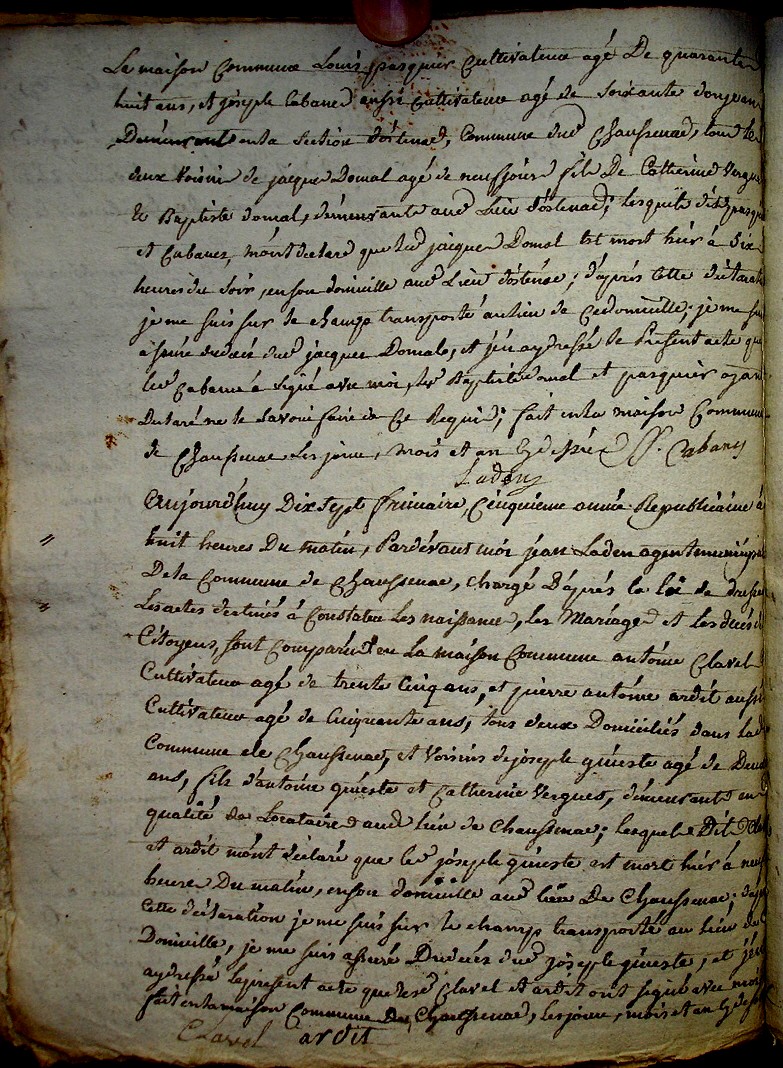 La maison Commune Louis pasquier Cultivateur agé De quarante
huit ans, et joseph Cabanes aussi Cultivateur agé de soixante
Demeurant enla section d'ostenac, Commune dud Chaussenac, tous les
deux Voisins de jacques Domal agé de neuf jours fils De Catherine Vergne
Et Baptiste domal, demeurants aud Lieu d'ostenac; lesquels dits pasquier
et Cabanes, m'ont declaré que led jacques Domal Est mort hier à Six
heures du soir, enson domicille aud Lieu d'ostenac; d'après cette déclarat
je me suis sur le champ transporté au lieu de Cedomicille; je me suis
assuré dudecès dud jacques Domal, et j'en aydressé le Présent acte que
led Cabanes à signé avec moi, led Baptiste domal et pasquier ayant
Declaré ne le Savoir faire de Ce Requis; fait enla maison Commune
de Chaussenac Les jour, mois et an Cydessus J. Cabanes
Laden
Aujourd'huy Dix Sept frimaire, Cinquième année Républicaine à
huit heures Du matin, Pardevant moi jean Laden agent municipal
De la Commune de Chaussenac, chargé D'après la loi de dresser
Les actes destinés à Constater Les naissances, les Mariages et les decès des
Citoyens, sont Comparû en La maison Commune antoine Clavel
Cultivateur agé de trente Cinq ans, et pierre antoine ardit aussi
Cultivateur agé de Cinquante ans, tous deux Domiciliés dans lad
Commune de Chaussenac, et Voisins de joseph quieste agé de Deux
ans, fils d'antoine quieste et Catherine Vergnes, demeurants en
qualité de Locataires aud lieu de Chaussenac; lesquels Dit Clavel
et ardit m'ont déclaré que led joseph quieste est mort hier à neuf
heures Du matin, enson domicille aud lieu De Chaussenac; d'après
Cette déclaration je me suis sur le champ transporté au lieu de
Domicille, je me suis assuré Dudecès dud joseph quieste, et j'en
aydressé leprésent acte que lesd Clavel et ardit ont signé avec moi
fait enla maison Commune De Chaussenac, les jour, mois et an Cydessus
Clavel ardit